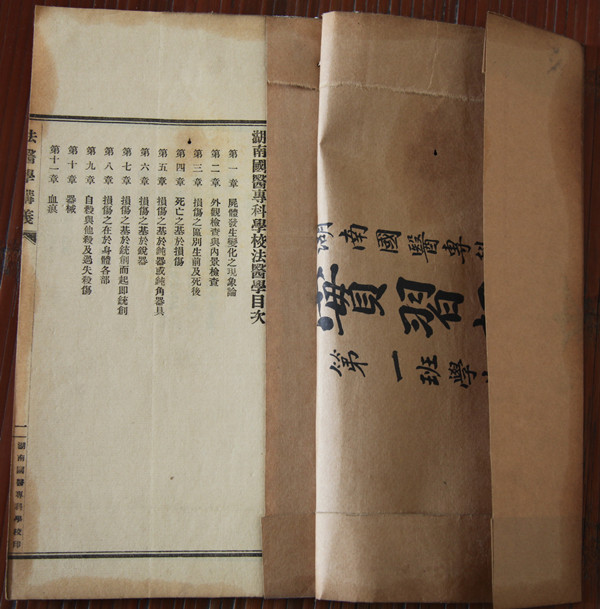 湖南國醫專科學校法醫學目次
第一章　屍體發生變化之現象論
第二章　外觀檢查與內景檢查
第三章　損傷之區別生前及死後
第四章　死亡之基於損傷
第五章　損傷之基於鈍器或鈍角器具
第六章　損傷之基於銳器
第七章　損傷之基於銃創而起即銃創
第八章　損傷之在於身體各部
第九章　自殺與他殺及過失殺傷
第十章　器械
第十一章　血痕
法醫學講義
一
湖南國醫專科學校印
湖南國醫專科
實習
第一班學